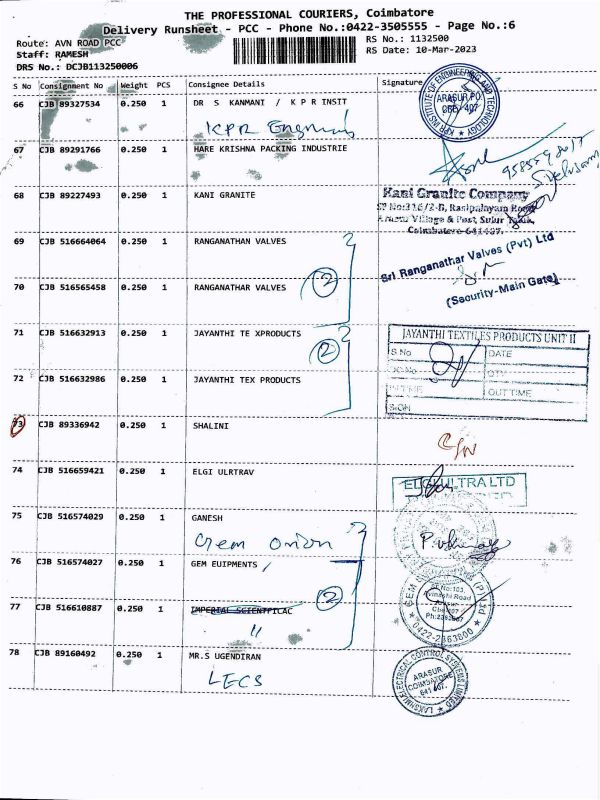 THE PROFESSIONAL COURIERS, Coimbatore
Delivery Runsheet - PCC - Phone No.:0422-3505555 - Page No.:6
Route: AVN ROAD PCC
RS No.: 1132500
Staff: RAMESH
RS Date: 10-Mar-2023
DRS No.: DCJB113250006
S No Consignment No Weight PCS Consignee Details Signature
66 CJB 89327534 0.250 1 DR S KANMANI / K P R INSTIT
KPR
KPR INSTITUTE OF ENGINEERING AND TECHNOLOGY
ARASUR PO.
CBE - 407
67 CJB 89291766 0.250 1 HARE KRISHNA PACKING INDUSTRIE
68 CJB 89227493 0.250 1 KANI GRANITE
Kani Granite Company
SF No:316/2-B, Rasipalayam Road
Arasur Village & Post, Sulur Taluk,
Coimbatore-641407.
69 CJB 516664064 0.250 1 RANGANATHAN VALVES
Sri Ranganathar Valves (Pvt) Ltd
(Security-Main Gate)
70 CJB 516565458 0.250 1 RANGANATHAN VALVES
2
71 CJB 516632913 0.250 1 JAYANTHI TE XPRODUCTS
2
JAYANTHI TEXTILES PRODUCTS UNIT II
S.No DATE
QTY
IN TIME OUT TIME
SIGN
72 CJB 516632986 0.250 1 JAYANTHI TEX PRODUCTS
73 CJB 89336942 0.250 1 SHALINI
74 CJB 516659421 0.250 1 ELGI ULRTRAV
ELGI ULTRA LTD
75 CJB 516574029 0.250 1 GANESH
Gem Orion
76 CJB 516574027 0.250 1 GEM EUIPMENTS
SF No:103,
Avinashi Road
Arasur
Cbe-407
Ph:2363667
0422-2363800
77 CJB 516610887 0.250 1 IMPERIAL SCIENTFICAC
"
2
78 CJB 89160492 0.250 1 MR.S UGENDIRAN
LECS
LAKSHMI ELECTRICAL CONTROL SYSTEMS LIMITED
ARASUR
COIMBATORE
641 407.